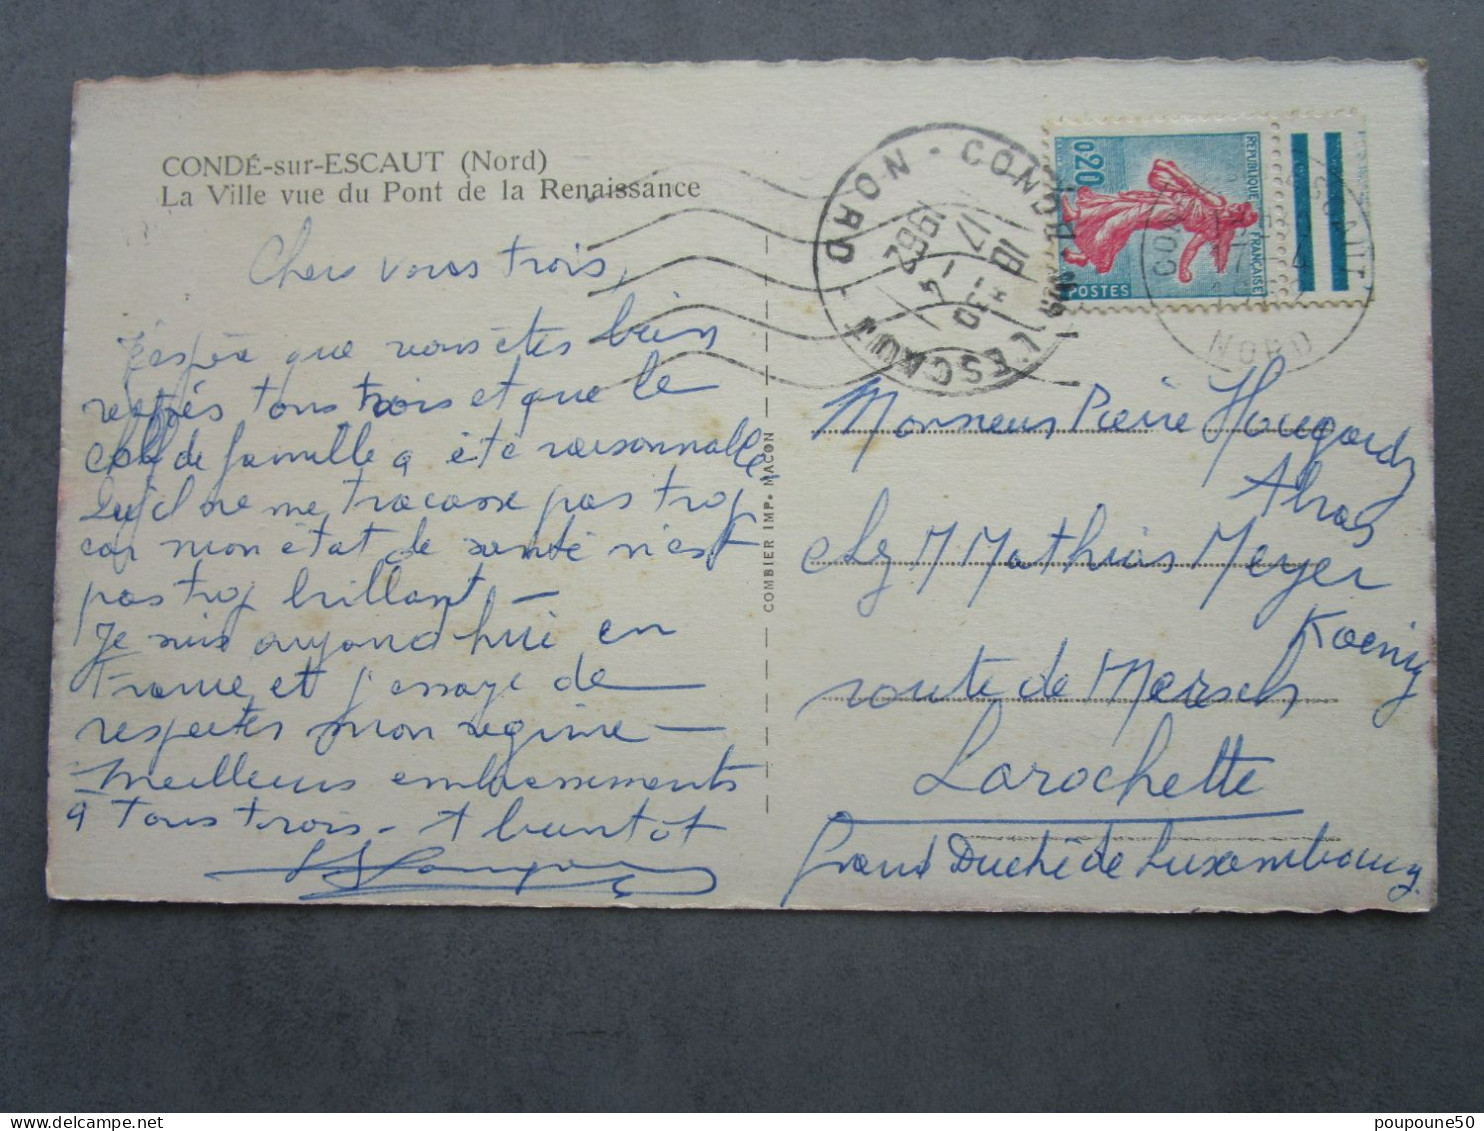 CONDÉ-sur-ESCAUT (Nord)
La Ville vue du Pont de la Renaissance
Chers vous trois,
J'espère que vous êtes bien
rentrés tous trois et que le
de famille a été raisonnable
Qu'il ne me tracasse pas trop
car mon état de santé n'est
pas trop brillant -
Je suis aujourd'hui en
France et j'essaye de
respecter mon régime -
Meilleurs embrassements
à tous trois - A bientôt
COMBIER IMP. MACON
CONDÉ SUR L'ESCAUT
NORD
18 - 17 H 30
4 - 1962
0,20
REPUBLIQUE FRANÇAISE
POSTES
NORD
Monsieur Pierre Hougardy
chez M Mathias Meyer
Koenig
route de Mersch
Larochette
Grand Duché de Luxembourg.
poupoune50